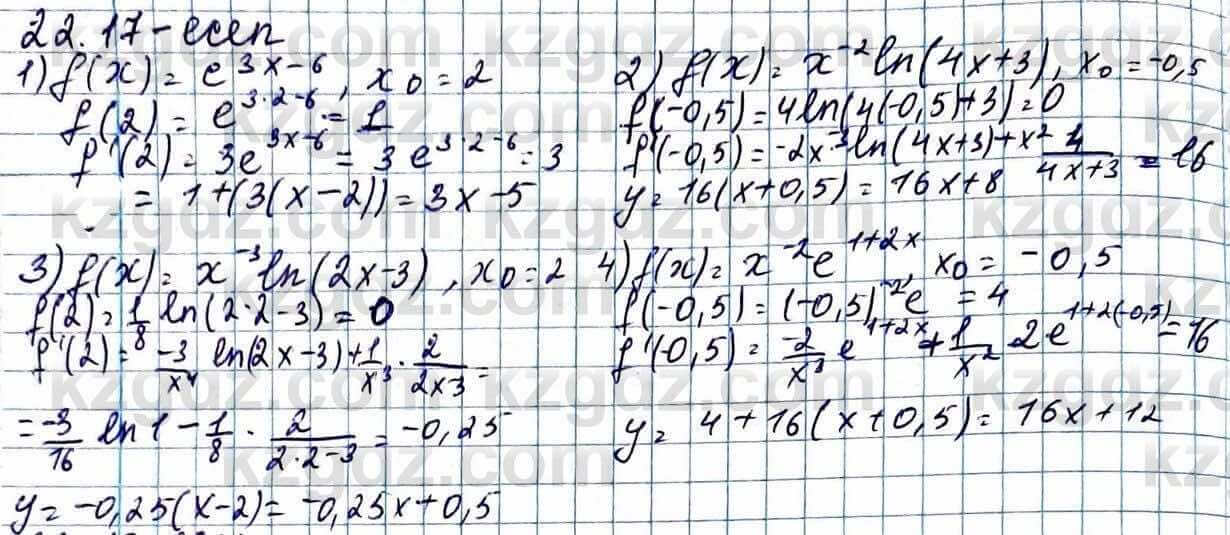 22.17-есеп
1) f(x) = e^{3x-6}, x0 = 2
f(2) = e^{3·2-6} = 1
f'(2) = 3e^{3x-6} = 3e^{3·2-6} = 3
= 1+(3(x-2)) = 3x-5
2) f(x) = x^{-2}ln(4x+3), x0 = -0,5
f(-0,5) = 4ln(4(-0,5)+3) = 0
f'(-0,5) = -2x^{-3}ln(4x+3)+x^{2} 4/(4x+3) = 16
y = 16(x+0,5) = 16x+8
3) f(x) = x^{-3}ln(2x-3), x0 = 2
f(2) = 1/8 ln(2·2-3) = 0
f'(2) = -3/x^{4} ln(2x-3)+1/x^{3} · 2/(2x-3) =
= -3/16 ln1 - 1/8 · 2/(2·2-3) = -0,25
y = -0,25(x-2) = -0,25x+0,5
4) f(x) = x^{-2}e^{1+2x}, x0 = -0,5
f(-0,5) = (-0,5)^{-2}e = 4
f'(-0,5) = -2/x^{3} e^{1+2x} + 1/x^{2} 2e^{1+2(-0,5)} = 16
y = 4+16(x+0,5) = 16x+12
kzgdz.com